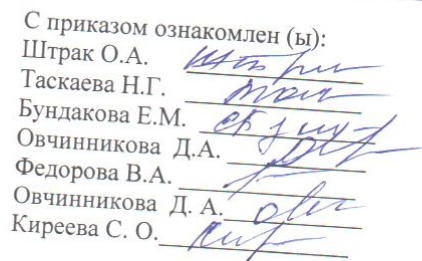 С приказом ознакомлен (ы):
Штрак О.А.
Таскаева Н.Г.
Бундакова Е.М.
Овчинникова Д.А.
Федорова В.А.
Овчинникова Д. А.
Киреева С. О.